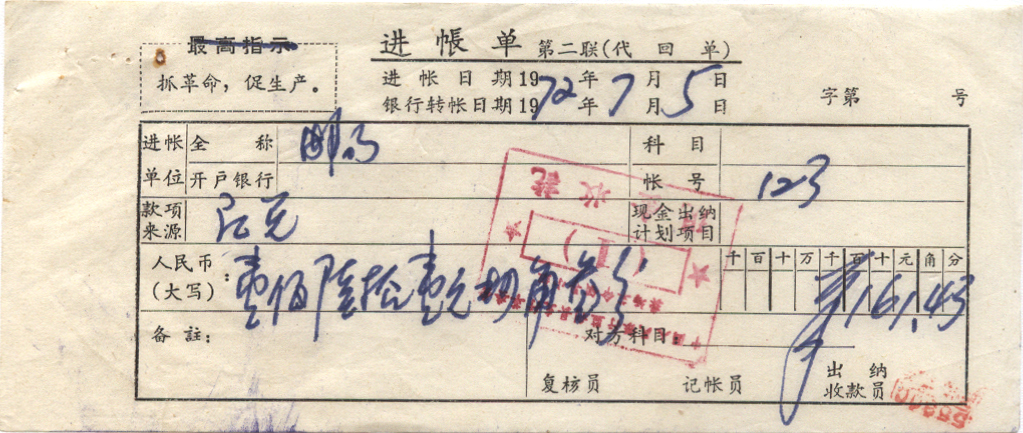 最高指示
抓革命，促生产。
进帐单 第二联(代回单)
进帐日期1972年7月5日
银行转帐日期1972年7月5日
字第 号
进帐单位 全称 科目
开户银行 帐号 123
款项来源 现金出纳计划项目
人民币(大写)： 壹佰陆拾壹元肆角叁分
千百十万千百十元角分
161.43
备註： 对方科目
复核员 记帐员 出纳收款员
收乾